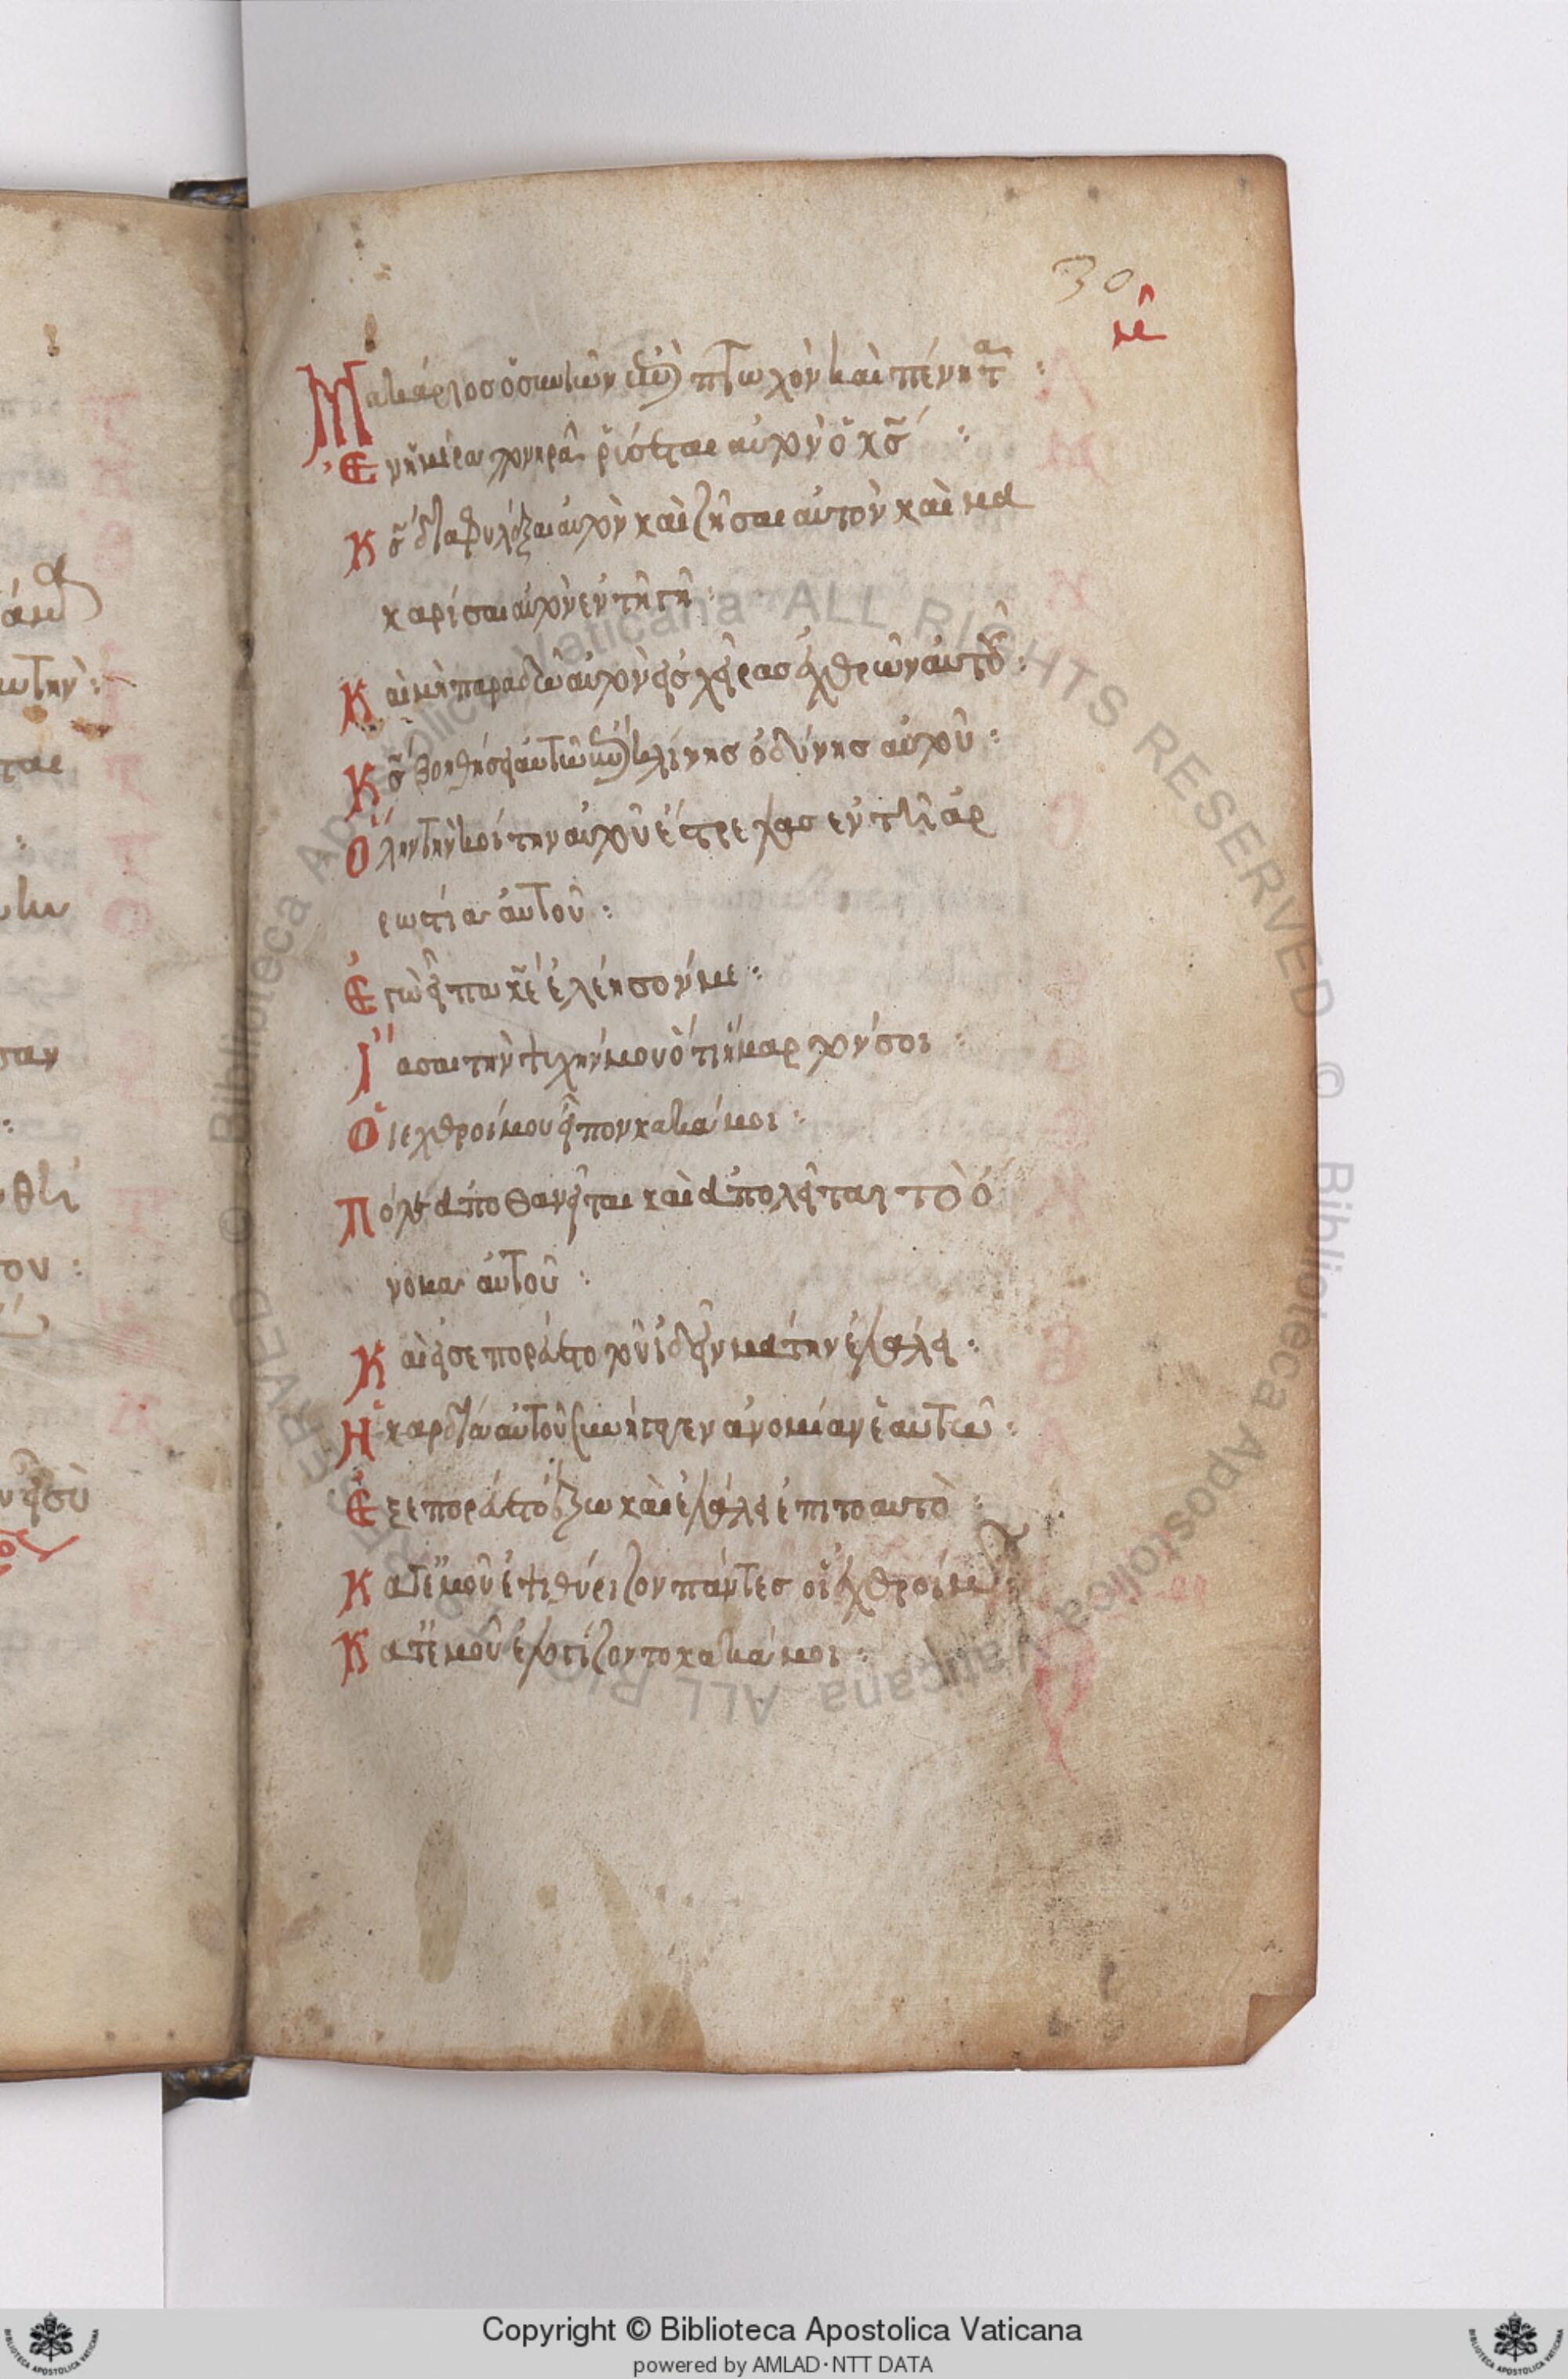 30
με
Μακάριος ὁ συνιῶν ἐπὶ πτωχὸν καὶ πένητα :
Ἐν ἡμέρα πονηρᾶ ῥύσεται αυτὸν ὁ κς :
Κς διαφυλάξαι αυτὸν καὶ ζῆσαι αὐτὸν καὶ μα
καρίσαι αυτὸν ἐν τῆ γῆ :
Και μὴ παραδῶ αυτὸν εἰς χεῖρας ἐχθρῶν αὐτοῦ :
Κς βοηθήσει αὐτῶ ἐπὶ κλίνης ὀδύνης αὐτοῦ :
Ὅλην τὴν κοίτην αυτοῦ ἔστρεψας ἐν τῆ ἀρ
ρωστία αὐτοῦ :
Ἐγὼ εἶπα κε ἐλέησόν με :
Ἴασαι τὴν ψυχήν μου ὅτι ἥμαρτόν σοι :
Οἱ ἐχθροί μου εἶπον κακά μοι :
Πότε ἀποθανεῖται καὶ ἀπολεῖται τὸ ὄ
νομα αὐτοῦ :
Καὶ εἰσεπορεύετο τοῦ ἰδεῖν μάτην ἐλάλει :
Ἡ καρδία αὐτοῦ συνήγαγεν ἀνομίαν ἑαυτῶ :
Ἐξεπορεύετο ἔξω καὶ ἐλάλει ἐπιτοαυτὸ :
Κατ ἐμοῦ ἐψιθύριζον πάντες οἱ ἐχθροί μου :
Κατ ἐμοῦ ἐλογίζοντο κακά μοι :
Copyright © Biblioteca Apostolica Vaticana
powered by AMLAD·NTT DATA